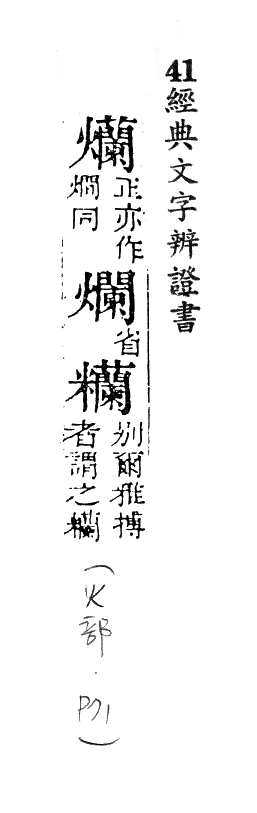 41經典文字辨證書
爤正亦作燗同爛省糷別爾雅搏者謂之糷
(火部.P71)